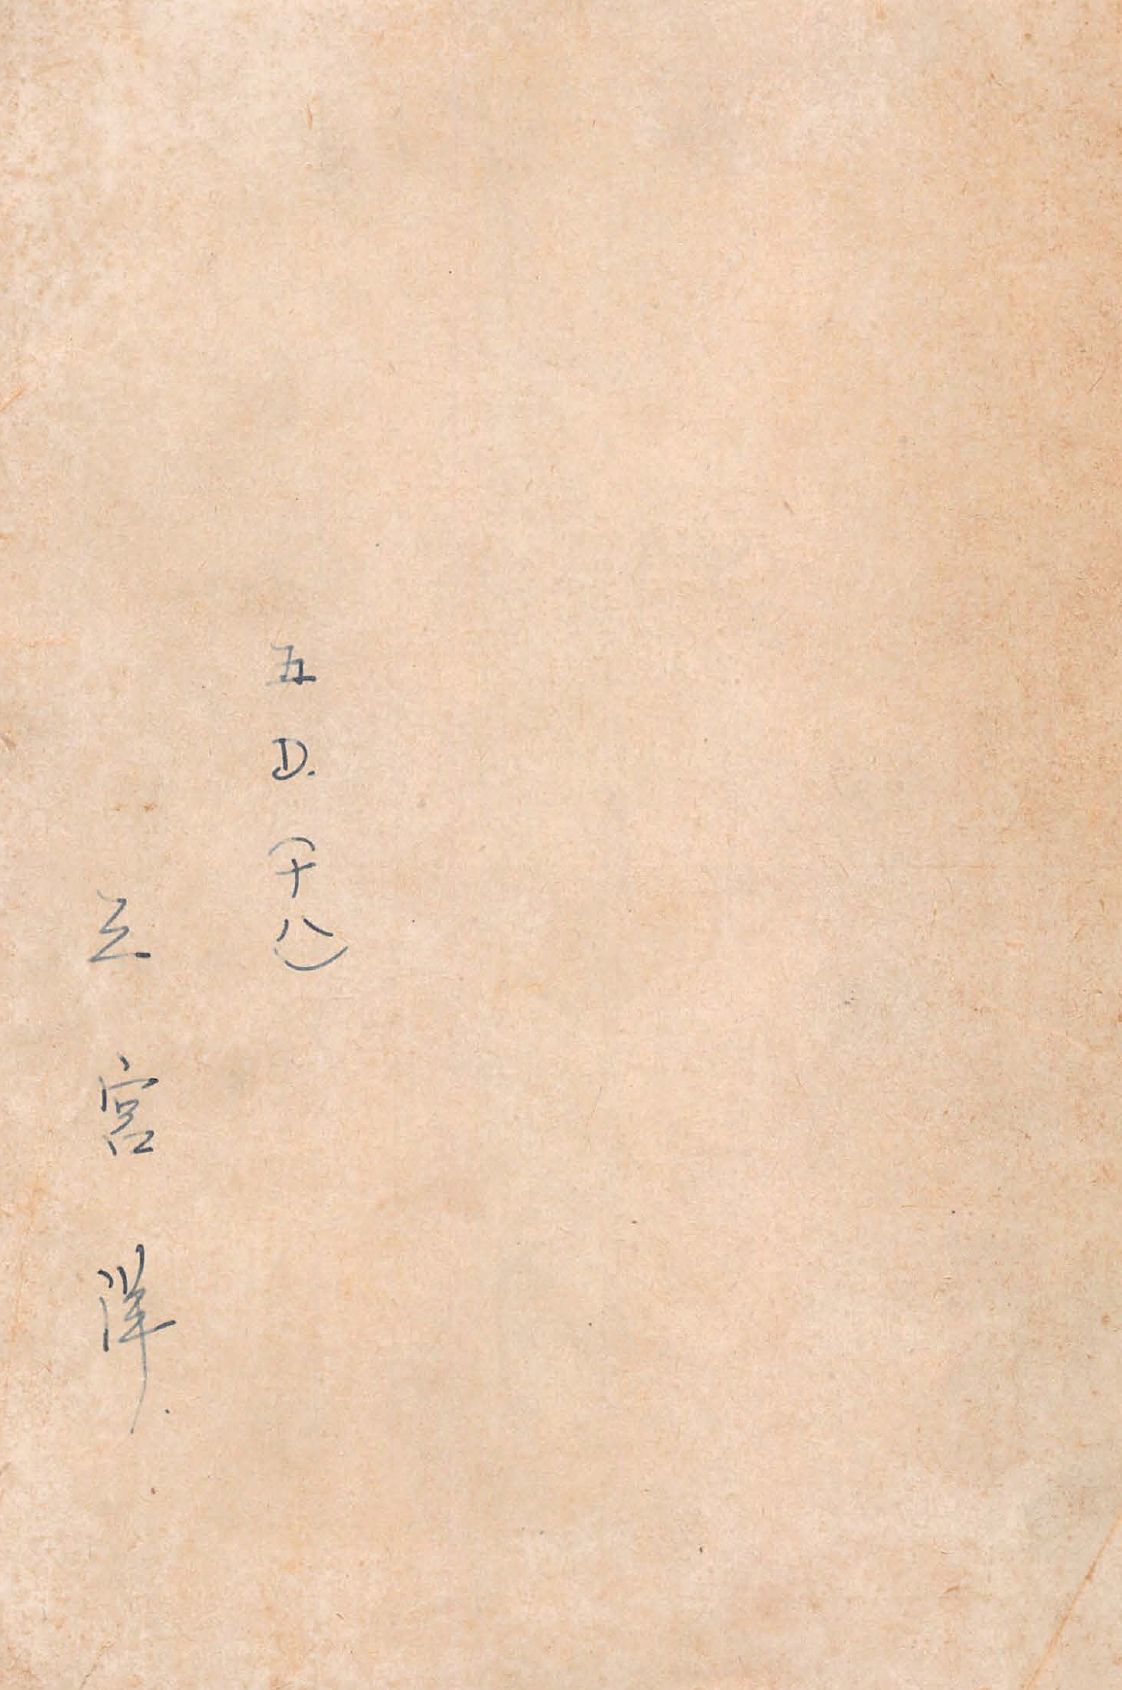 五D.(十八)
三宮洋